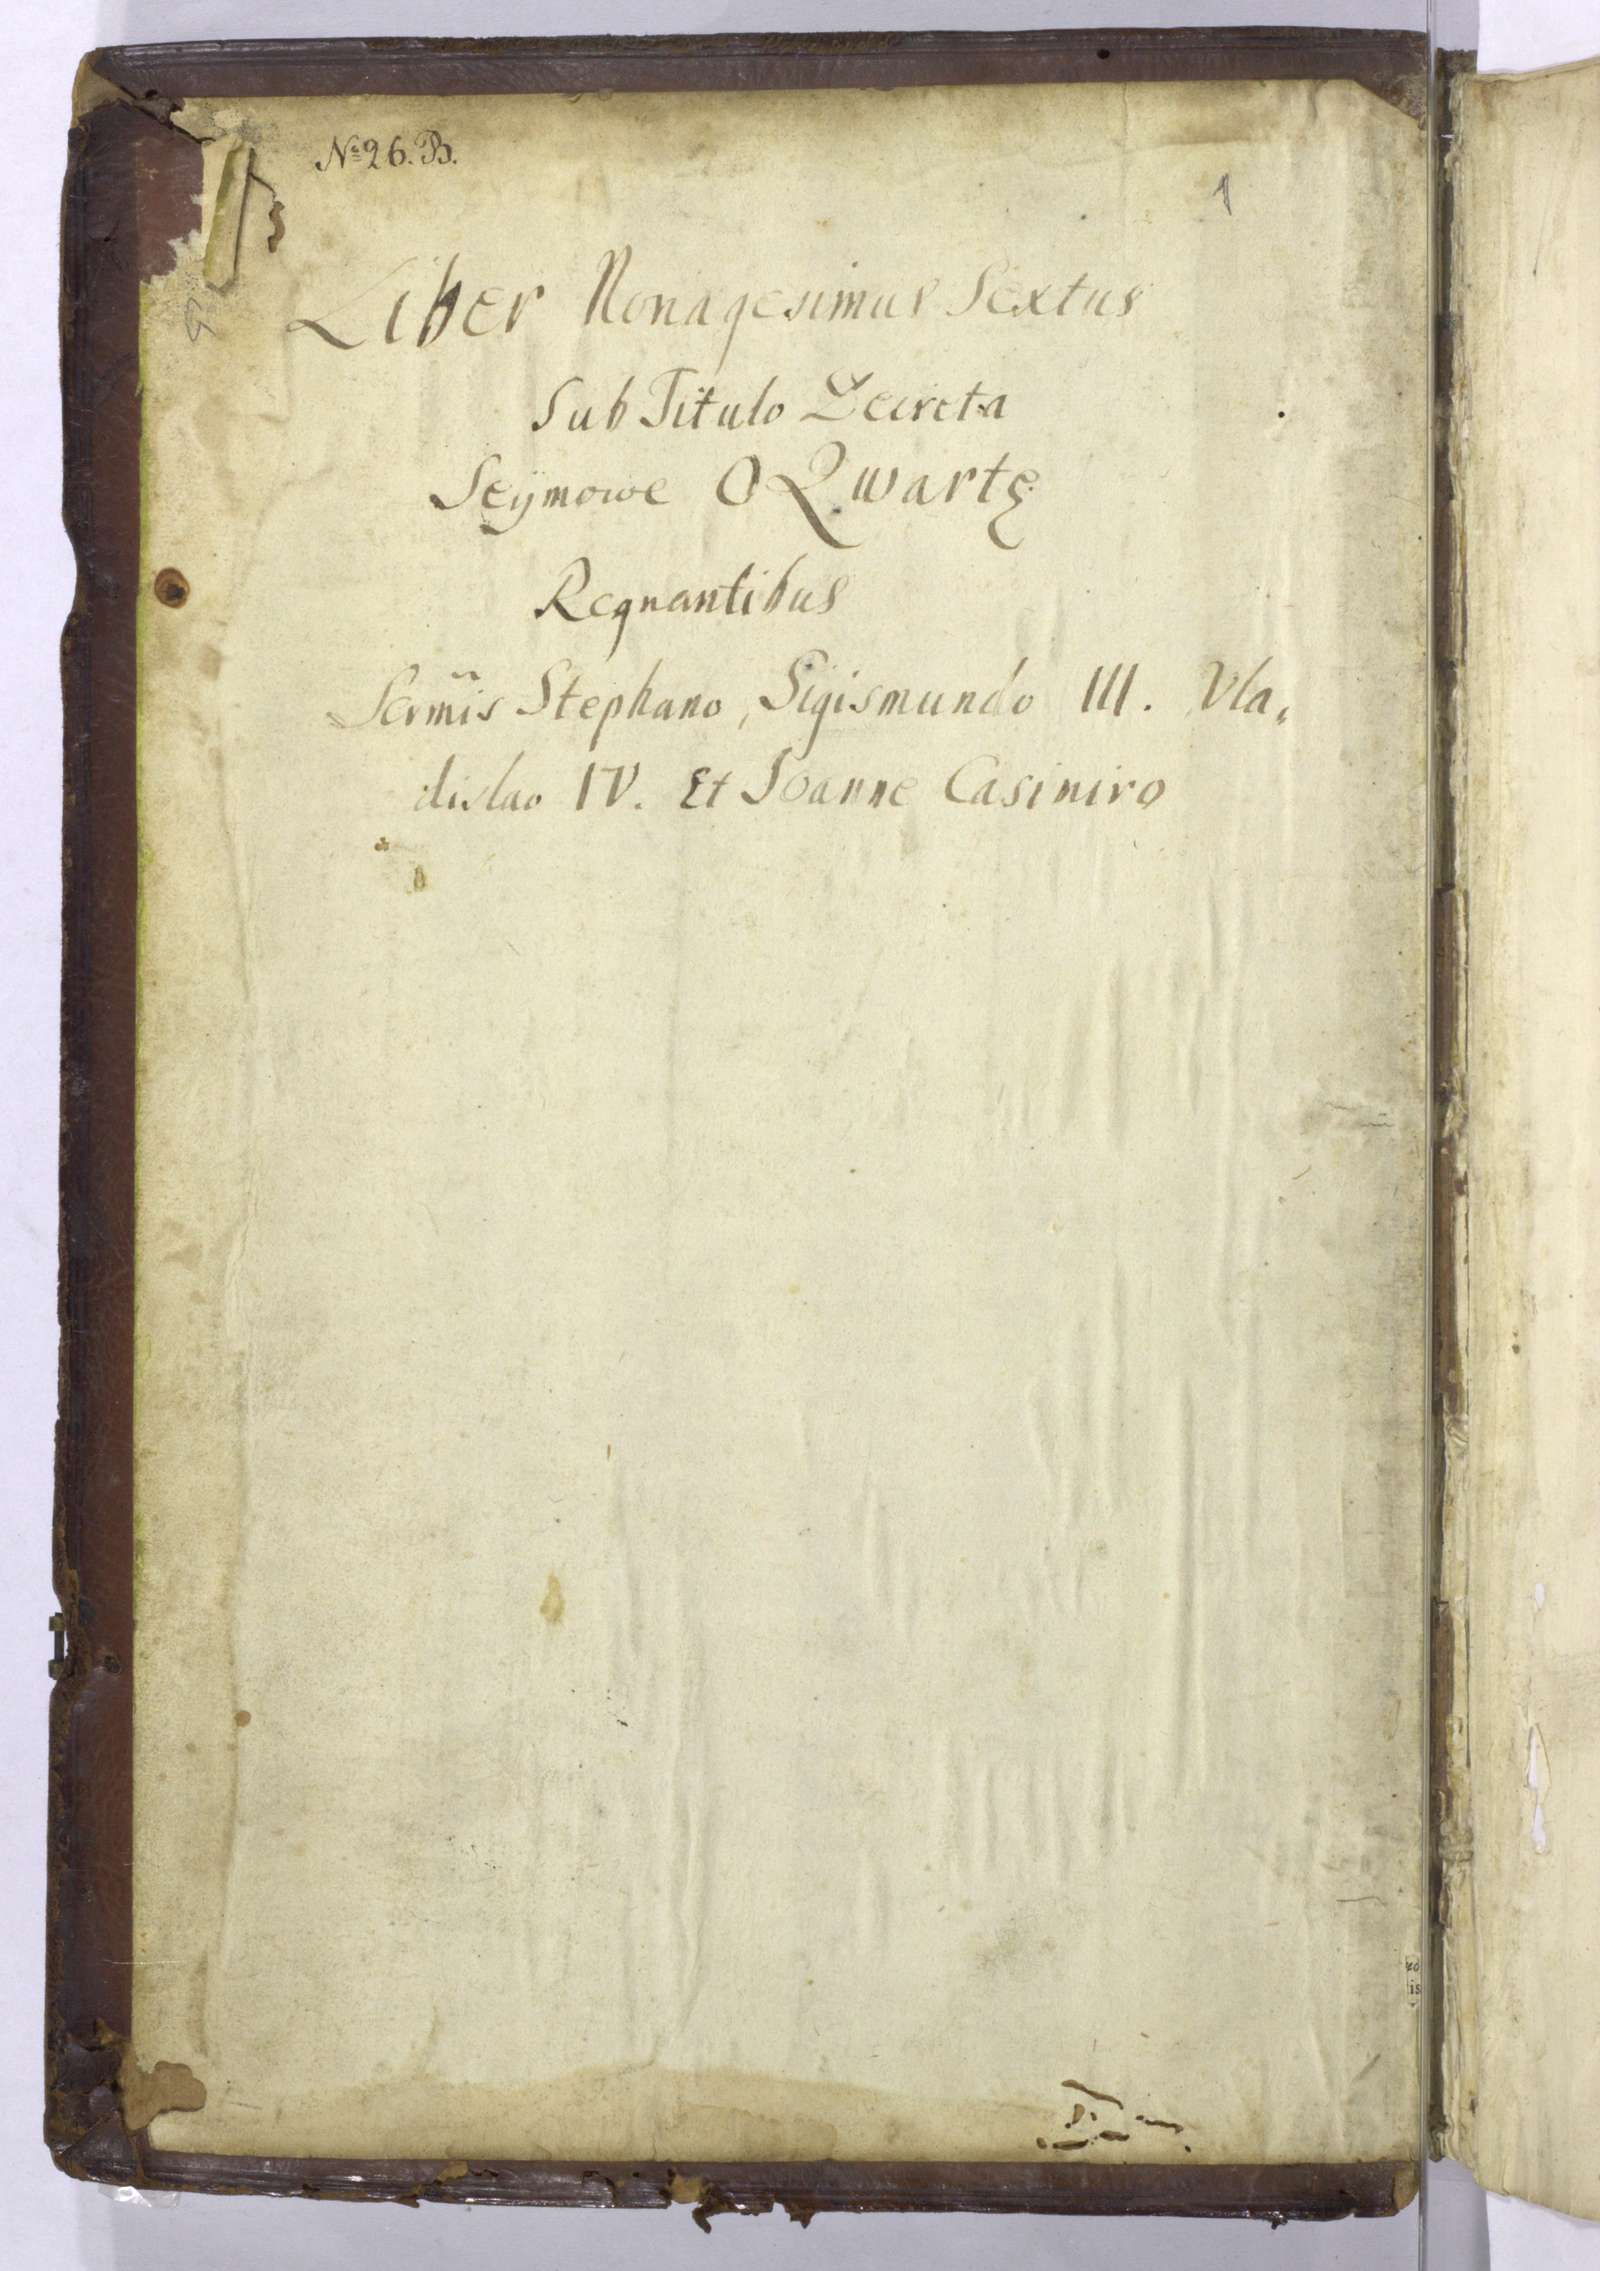 № 26. B.
1
Liber Nonagesimus Sextus
Sub Titulo Decreta
Seymowe O Qwartę
Regnantibus
Sermis Stephano, Sigismundo III. Vla„
dislao IV. Et Joanne Casimiro